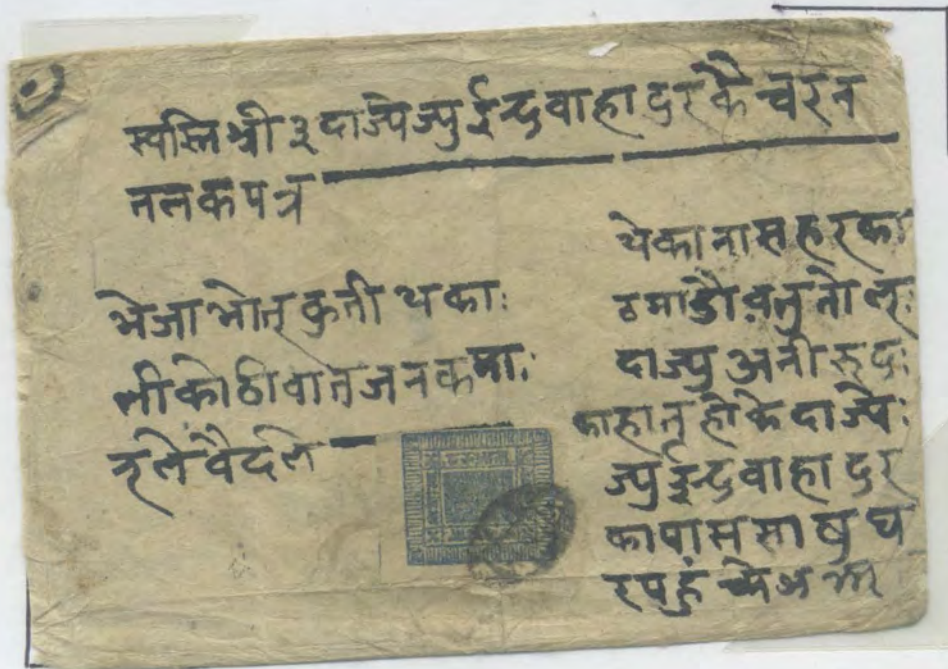 स्वस्ति श्री ३ दाज्येज्यु ईन्द्र वाहादुरकै चरन
तलकपत्र
भेजा भोत् कुती थकाः
ली कोठी वात जनकमाः
नले वैदले
येकाना सहरका
ठमाडौ वतु तोलः
दाज्यु अनीरूदः
काहा तहाके दाज्येः
ज्यु ईन्द्र वाहादुर
का पास साष घ
र पहुंचे